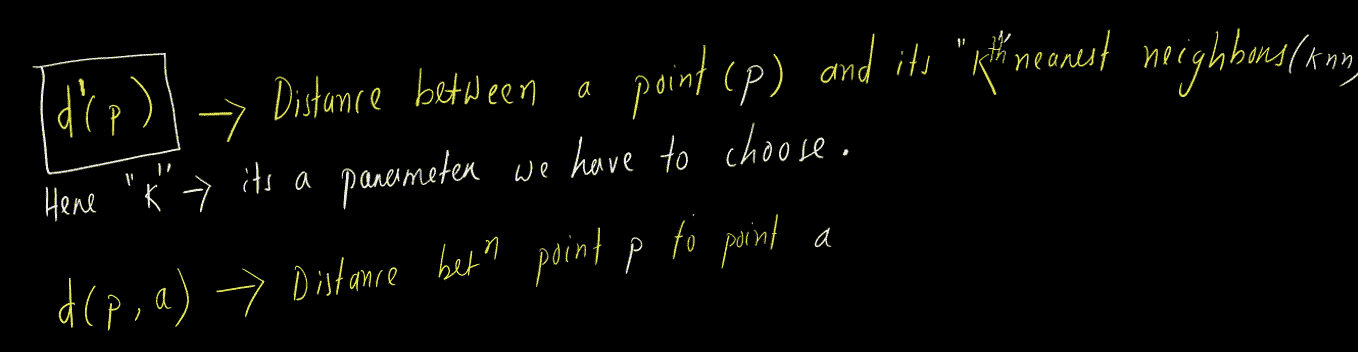 d'(p) → Distance between a point (p) and its "Kth nearest neighbors (knn)
Here "K" → its a parameter we have to choose.
d(p, a) → Distance betn point p to point a